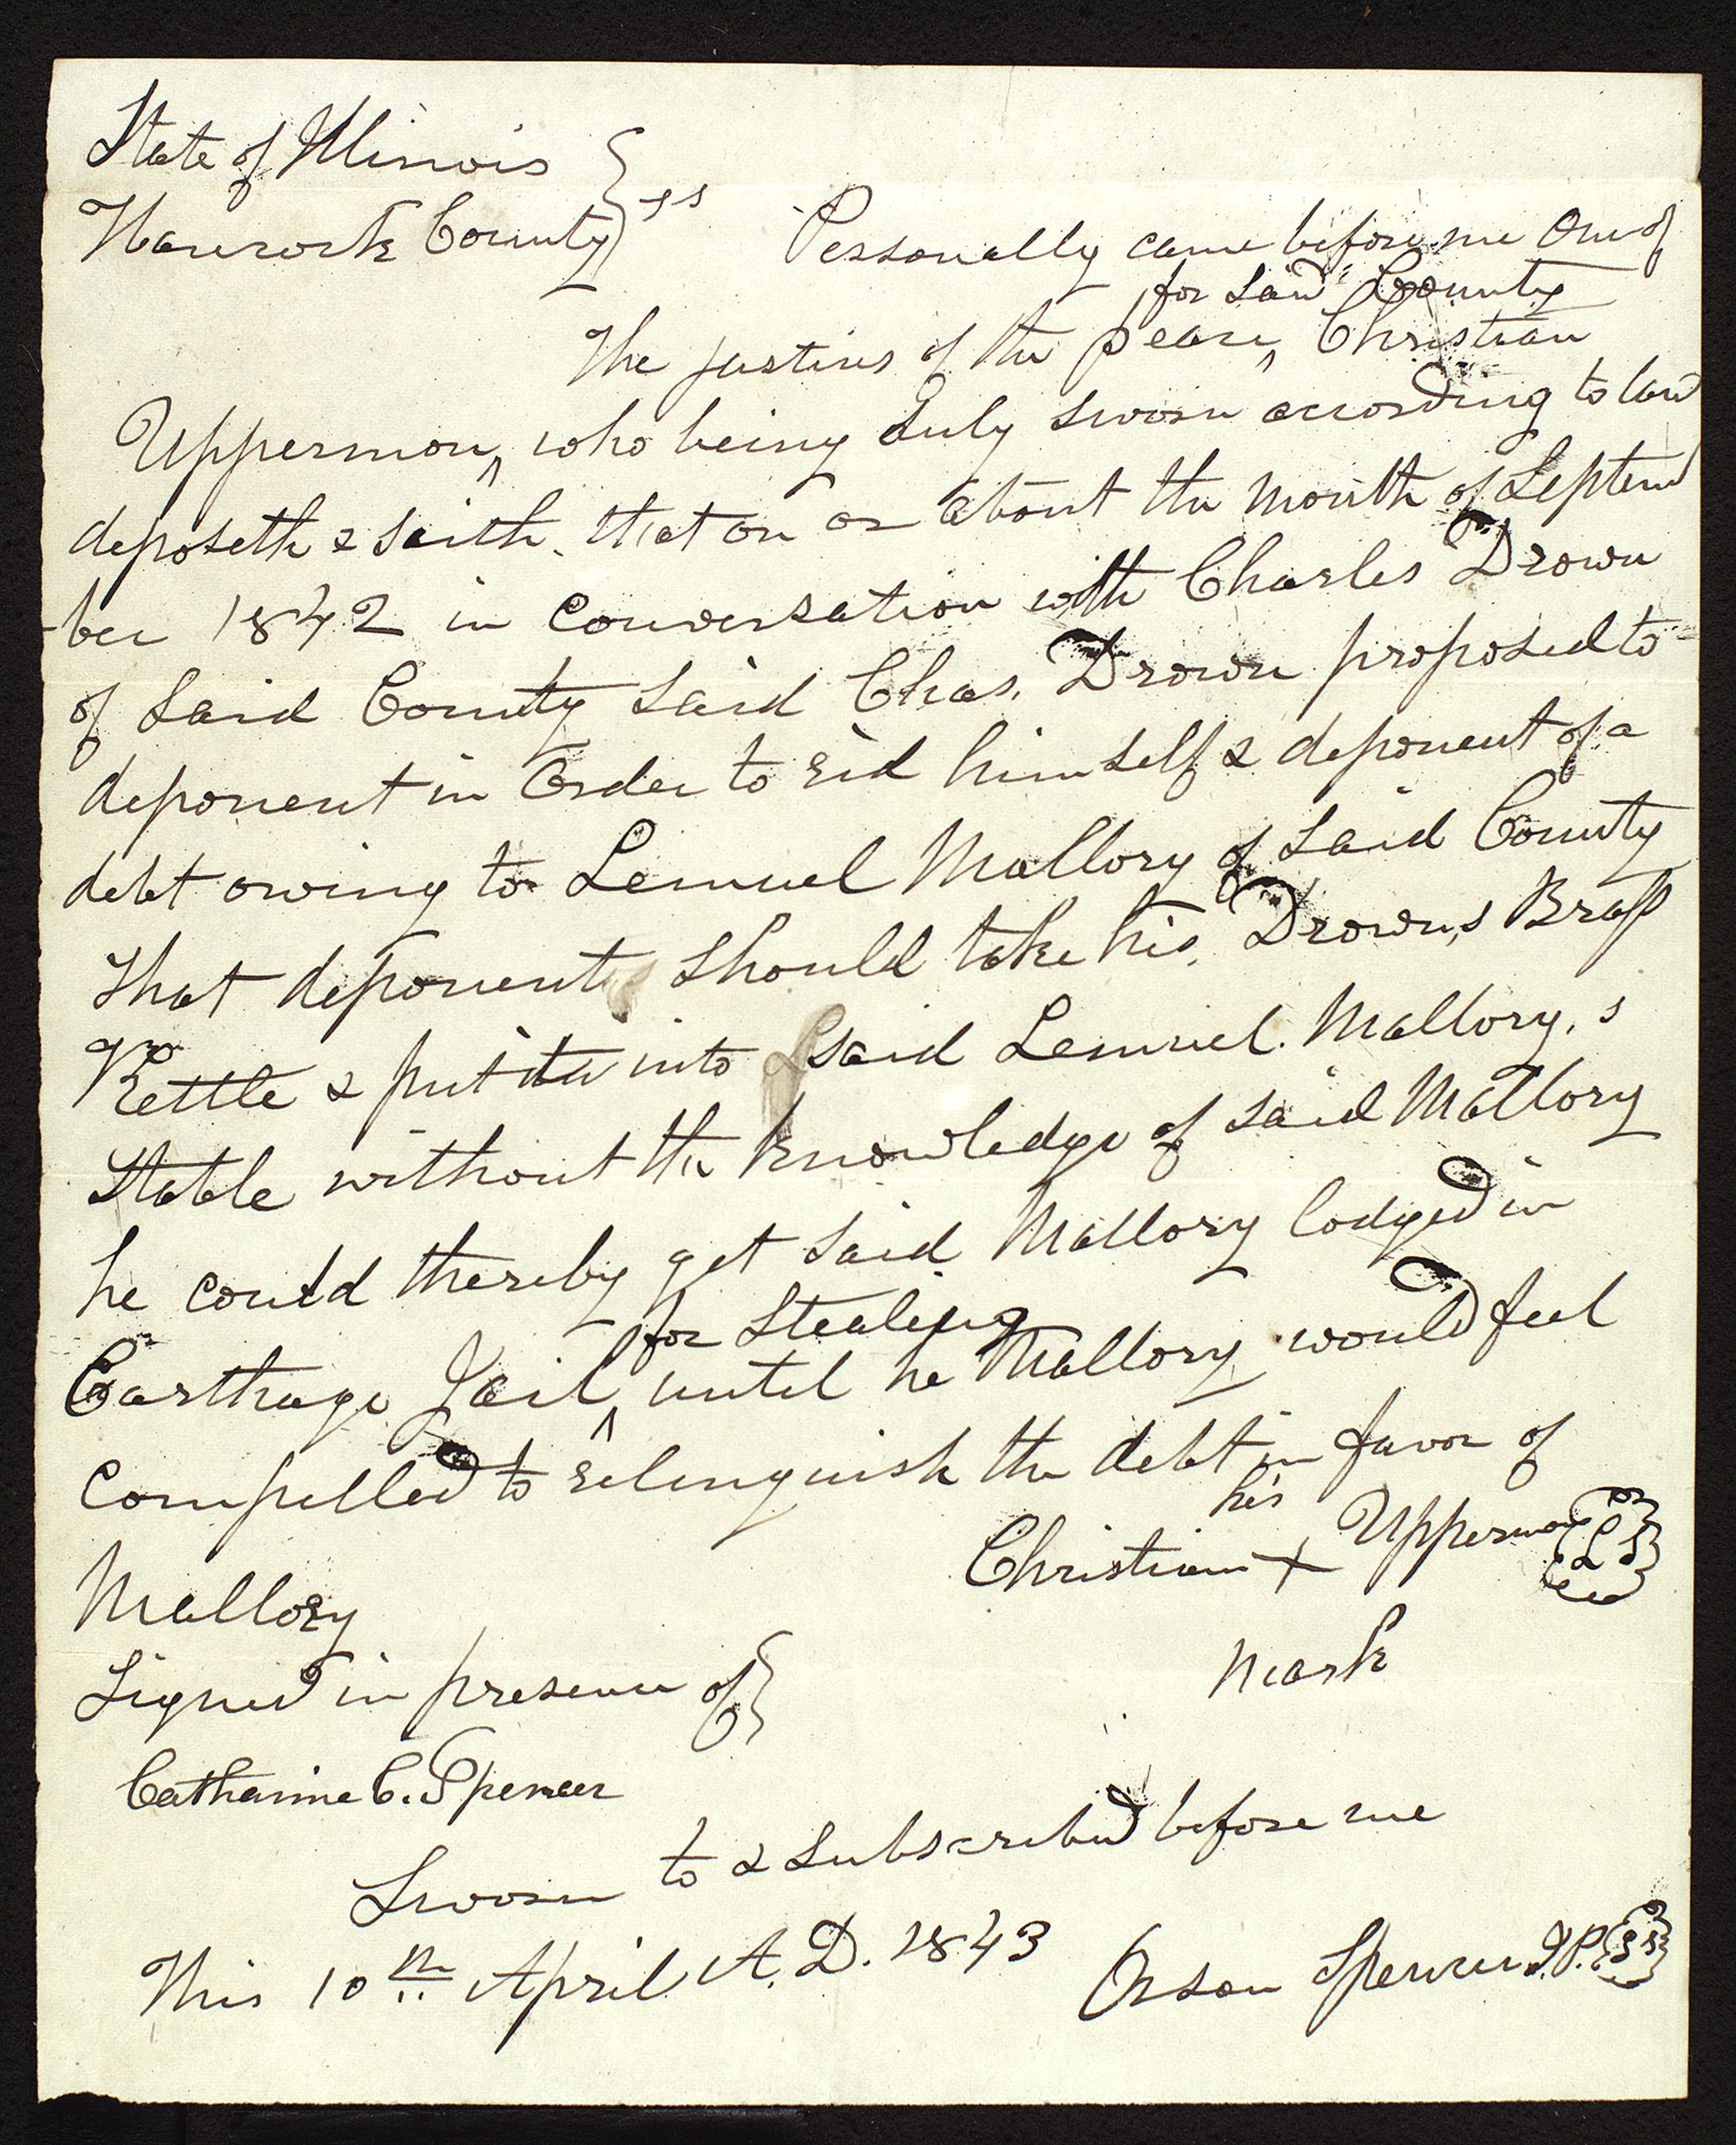 State of Illinois
Hancock County } ss Personally came before me One of
for said County
the justices of the peace ^ Christian
Uppermon ^ who being duly sworn according to law
deposeth & saith. that on or about the month of Septem
-ber 1842 in conversation with Charles Drown
of said County said Chas. Drown proposed to
deponent in order to rid himself & deponent of a
debt owing to Lemuel Mallory of said County
that deponent should take his, Drown,s Brass
Kettle & put it into said Lemuel. Mallory,s
Stable without the knowledge of said Mallory
he could thereby get said Mallory lodged in
for Stealing
Carthage Jail ^ until he Mallory would feel
compelled to relinquish the debt in favor of
his
Christian + Uppermon {L S}
Mallory
mark
Signed in presence of }
Catharine C. Spencer
Sworn to & subscribed before me
This 10th April A. D. 1843 Orson Spencer J. P. {LS}